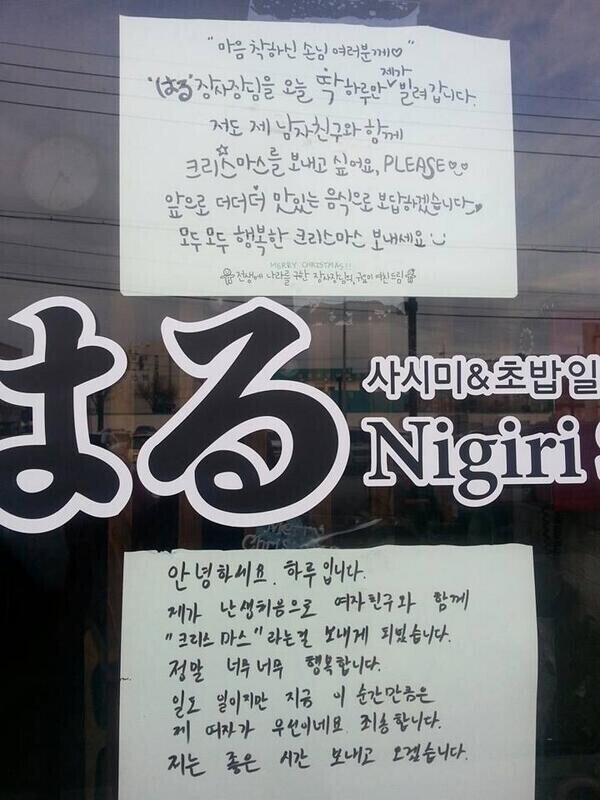 "마음 착하신 손님 여러분께♡"
'はる' 장사장님을 오늘 딱 하루만 제가 빌려갑니다.
저도 제 남자친구와 함께
크리스마스를 보내고 싶어요, PLEASE
앞으로 더더더 맛있는 음식으로 보답하겠습니다
모두모두 행복한 크리스마스 보내세요
MERRY CHRISTMAS!!
전생에 나라를 구한 장사장님의, 여친드림
はる
사시미&초밥 일
Nigiri S
Merry
Chris
안녕하세요. 하루입니다.
제가 난생처음으로 여자친구와 함께
"크리스마스"라는걸 보내게 되었습니다.
정말 너무너무 행복합니다.
일도 일이지만 지금 이 순간만큼은
제 여자가 우선이네요. 죄송합니다.
저는 좋은 시간 보내고 오겠습니다.